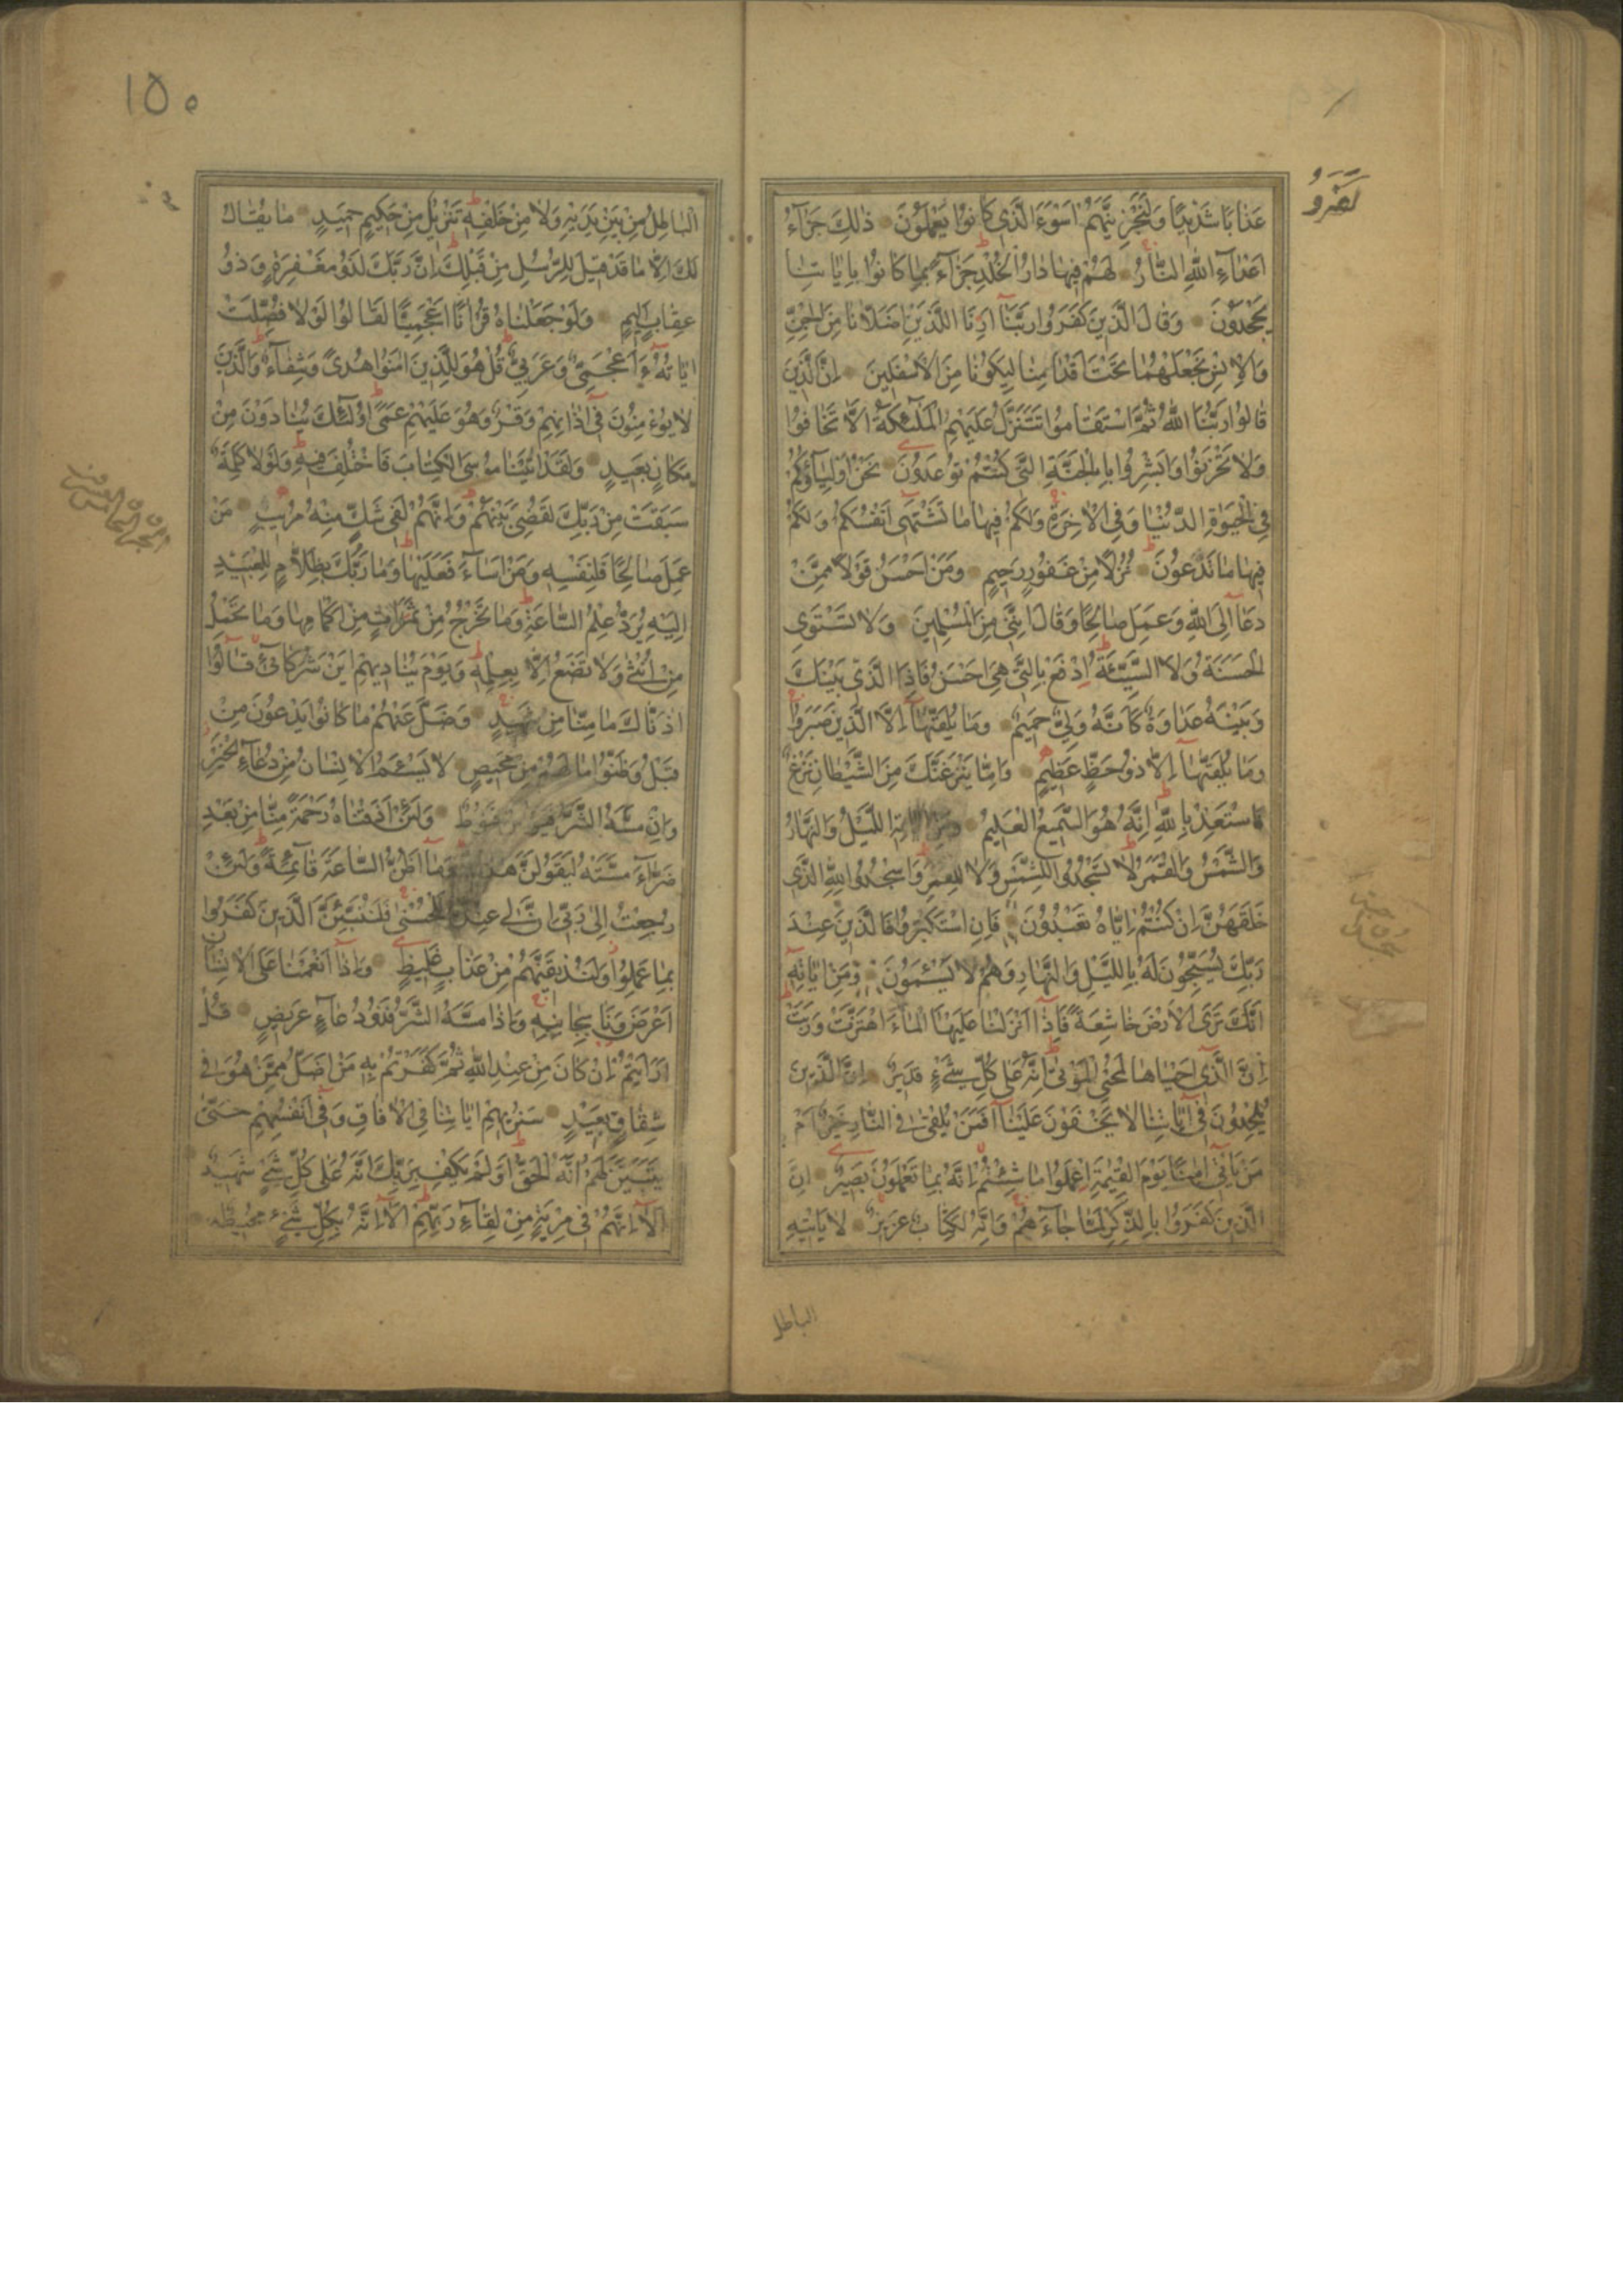 عَذَابًا شَدِيدًا وَلَنَجْزِيَنَّهُمْ اَسْوَءَ الَّذِي كَانُوا يَعْمَلُونَ ذٰلِكَ جَزَآءُ
اَعْدَآءِ اللّٰهِ النَّارُ لَهُمْ فِيهَا دَارُ الْخُلْدِ جَزَآءً بِمَا كَانُوا بِاٰيَاتِنَا
يَجْحَدُونَ وَقَالَ الَّذِينَ كَفَرُوا رَبَّنَآ اَرِنَا اللَّذَيْنِ اَضَلَّانَا مِنَ الْجِنِّ
وَالْاِنْسِ نَجْعَلْهُمَا تَحْتَ اَقْدَامِنَا لِيَكُونَا مِنَ الْاَسْفَلِينَ اِنَّ الَّذِينَ
قَالُوا رَبُّنَا اللّٰهُ ثُمَّ اسْتَقَامُوا تَتَنَزَّلُ عَلَيْهِمُ الْمَلٰٓئِكَةُ اَلَّا تَخَافُوا
وَلَا تَحْزَنُوا وَاَبْشِرُوا بِالْجَنَّةِ الَّتِي كُنْتُمْ تُوعَدُونَ نَحْنُ اَوْلِيَآؤُكُمْ
فِي الْحَيٰوةِ الدُّنْيَا وَفِي الْاٰخِرَةِ وَلَكُمْ فِيهَا مَا تَشْتَهِي اَنْفُسُكُمْ وَلَكُمْ
فِيهَا مَا تَدَّعُونَ نُزُلًا مِنْ غَفُورٍ رَحِيمٍ وَمَنْ اَحْسَنُ قَوْلًا مِمَّنْ
دَعَآ اِلَى اللّٰهِ وَعَمِلَ صَالِحًا وَقَالَ اِنَّنِي مِنَ الْمُسْلِمِينَ وَلَا تَسْتَوِي
الْحَسَنَةُ وَلَا السَّيِّئَةُ اِدْفَعْ بِالَّتِي هِيَ اَحْسَنُ فَاِذَا الَّذِي بَيْنَكَ
وَبَيْنَهُ عَدَاوَةٌ كَاَنَّهُ وَلِيٌّ حَمِيمٌ وَمَا يُلَقّٰيهَآ اِلَّا الَّذِينَ صَبَرُوا
وَمَا يُلَقّٰيهَآ اِلَّا ذُو حَظٍّ عَظِيمٍ وَاِمَّا يَنْزَغَنَّكَ مِنَ الشَّيْطَانِ نَزْغٌ
فَاسْتَعِذْ بِاللّٰهِ اِنَّهُ هُوَ السَّمِيعُ الْعَلِيمُ اللَّيْلُ وَالنَّهَارُ
وَالشَّمْسُ وَالْقَمَرُ لَا تَسْجُدُوا لِلشَّمْسِ وَلَا لِلْقَمَرِ وَاسْجُدُوا لِلّٰهِ الَّذِي
خَلَقَهُنَّ اِنْ كُنْتُمْ اِيَّاهُ تَعْبُدُونَ فَاِنِ اسْتَكْبَرُوا فَالَّذِينَ عِنْدَ
رَبِّكَ يُسَبِّحُونَ لَهُ بِاللَّيْلِ وَالنَّهَارِ وَهُمْ لَا يَسْئَمُونَ وَمِنْ اٰيَاتِهِ
اَنَّكَ تَرَى الْاَرْضَ خَاشِعَةً فَاِذَآ اَنْزَلْنَا عَلَيْهَا الْمَآءَ اهْتَزَّتْ وَرَبَتْ
اِنَّ الَّذِي اَحْيَاهَا لَمُحْيِ الْمَوْتٰى اِنَّهُ عَلٰى كُلِّ شَيْءٍ قَدِيرٌ اِنَّ الَّذِينَ
يُلْحِدُونَ فِي اٰيَاتِنَا لَا يَخْفَوْنَ عَلَيْنَا اَفَمَنْ يُلْقٰى فِي النَّارِ خَيْرٌ اَمْ
مَنْ يَاْتِي اٰمِنًا يَوْمَ الْقِيٰمَةِ اِعْمَلُوا مَا شِئْتُمْ اِنَّهُ بِمَا تَعْمَلُونَ بَصِيرٌ اِنَّ
الَّذِينَ كَفَرُوا بِالذِّكْرِ لَمَّا جَآءَهُمْ وَاِنَّهُ لَكِتَابٌ عَزِيزٌ لَا يَاْتِيهِ
الباطل
١٥٠
الْبَاطِلُ مِنْ بَيْنِ يَدَيْهِ وَلَا مِنْ خَلْفِهِ تَنْزِيلٌ مِنْ حَكِيمٍ حَمِيدٍ مَا يُقَالُ
لَكَ اِلَّا مَا قَدْ قِيلَ لِلرُّسُلِ مِنْ قَبْلِكَ اِنَّ رَبَّكَ لَذُو مَغْفِرَةٍ وَذُو
عِقَابٍ اَلِيمٍ وَلَوْ جَعَلْنَاهُ قُرْاٰنًا اَعْجَمِيًّا لَقَالُوا لَوْلَا فُصِّلَتْ
اٰيَاتُهُ ءَاَعْجَمِيٌّ وَعَرَبِيٌّ قُلْ هُوَ لِلَّذِينَ اٰمَنُوا هُدًى وَشِفَآءٌ وَالَّذِينَ
لَا يُؤْمِنُونَ فِي اٰذَانِهِمْ وَقْرٌ وَهُوَ عَلَيْهِمْ عَمًى اُولٰٓئِكَ يُنَادَوْنَ مِنْ
مَكَانٍ بَعِيدٍ وَلَقَدْ اٰتَيْنَا مُوسَى الْكِتَابَ فَاخْتُلِفَ فِيهِ وَلَوْلَا كَلِمَةٌ
سَبَقَتْ مِنْ رَبِّكَ لَقُضِيَ بَيْنَهُمْ وَاِنَّهُمْ لَفِي شَكٍّ مِنْهُ مُرِيبٍ مَنْ
عَمِلَ صَالِحًا فَلِنَفْسِهِ وَمَنْ اَسَآءَ فَعَلَيْهَا وَمَا رَبُّكَ بِظَلَّامٍ لِلْعَبِيدِ
اِلَيْهِ يُرَدُّ عِلْمُ السَّاعَةِ وَمَا تَخْرُجُ مِنْ ثَمَرَاتٍ مِنْ اَكْمَامِهَا وَمَا تَحْمِلُ
مِنْ اُنْثٰى وَلَا تَضَعُ اِلَّا بِعِلْمِهِ وَيَوْمَ يُنَادِيهِمْ اَيْنَ شُرَكَآئِي قَالُوا
اٰذَنَّاكَ مَا مِنَّا مِنْ شَهِيدٍ وَضَلَّ عَنْهُمْ مَا كَانُوا يَدْعُونَ مِنْ
قَبْلُ وَظَنُّوا مَا لَهُمْ مِنْ مَحِيصٍ لَا يَسْئَمُ الْاِنْسَانُ مِنْ دُعَآءِ الْخَيْرِ
وَاِنْ مَسَّهُ الشَّرُّ قَنُوطٌ وَلَئِنْ اَذَقْنَاهُ رَحْمَةً مِنَّا مِنْ بَعْدِ
ضَرَّآءَ مَسَّتْهُ لَيَقُولَنَّ وَمَآ اَظُنُّ السَّاعَةَ قَآئِمَةً وَلَئِنْ
رُجِعْتُ اِلٰى رَبِّي اِنَّ لِي عِنْدَهُ لَلْحُسْنٰى فَلَنُنَبِّئَنَّ الَّذِينَ كَفَرُوا
بِمَا عَمِلُوا وَلَنُذِيقَنَّهُمْ مِنْ عَذَابٍ غَلِيظٍ وَاِذَآ اَنْعَمْنَا عَلَى الْاِنْسَانِ
اَعْرَضَ وَنَاٰ بِجَانِبِهِ وَاِذَا مَسَّهُ الشَّرُّ فَذُو دُعَآءٍ عَرِيضٍ قُلْ
اَرَاَيْتُمْ اِنْ كَانَ مِنْ عِنْدِ اللّٰهِ ثُمَّ كَفَرْتُمْ بِهِ مَنْ اَضَلُّ مِمَّنْ هُوَ فِي
شِقَاقٍ بَعِيدٍ سَنُرِيهِمْ اٰيَاتِنَا فِي الْاٰفَاقِ وَفِي اَنْفُسِهِمْ حَتّٰى
يَتَبَيَّنَ لَهُمْ اَنَّهُ الْحَقُّ اَوَلَمْ يَكْفِ بِرَبِّكَ اَنَّهُ عَلٰى كُلِّ شَيْءٍ شَهِيدٌ
اَلَآ اِنَّهُمْ فِي مِرْيَةٍ مِنْ لِقَآءِ رَبِّهِمْ اَلَآ اِنَّهُ بِكُلِّ شَيْءٍ مُحِيطٌ